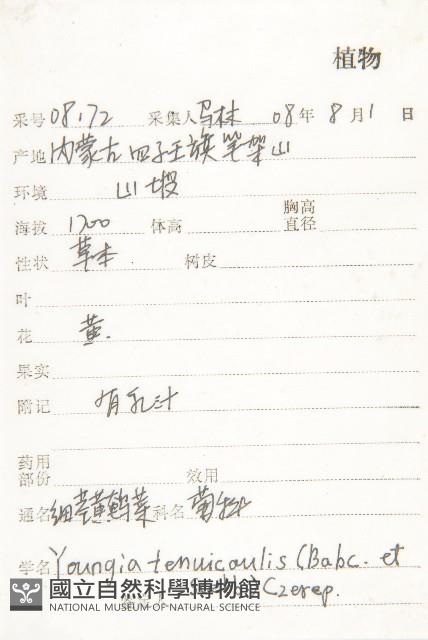 植物
采号 08172 采集人 马林 08年 8月1日
产地 内蒙古四子王旗笔架山
环境 山坡
海拔 1700 体高 胸高直径
性状 草本 树皮
叶
花 黄.
果实
附记 有乳汁
药用部份 效用
通名 细茎黄鹌菜 科名 菊科
学名 Youngia tenuicaulis (Babc. et
Czerep.
國立自然科學博物館
NATIONAL MUSEUM OF NATURAL SCIENCE